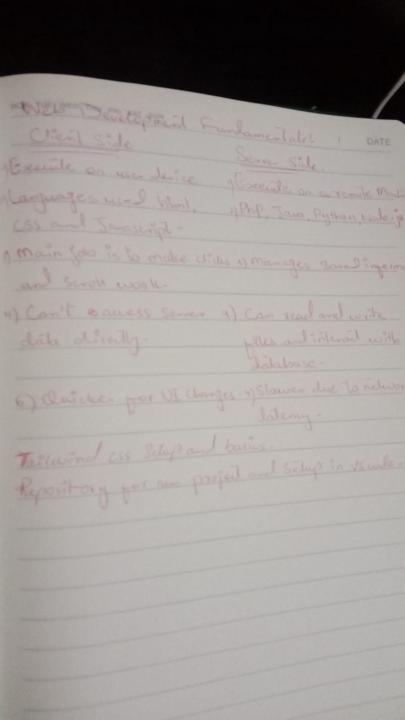 Web Development Fundamentals:
DATE
Client Side
Server Side.
Execute on user device
Execute on a remote
Languages used html,
PhP, Java, Python, Node.js
CSS and Javascript.
Main job is to make clicks
Manages
and scroll work.
4) Can't access server
Can read and write
data directly.
files and interact with
database.
Quicker for UI changes.
Slower due to network
latency.
Tailwind css Setup and basics.
Repository for project and Setup in